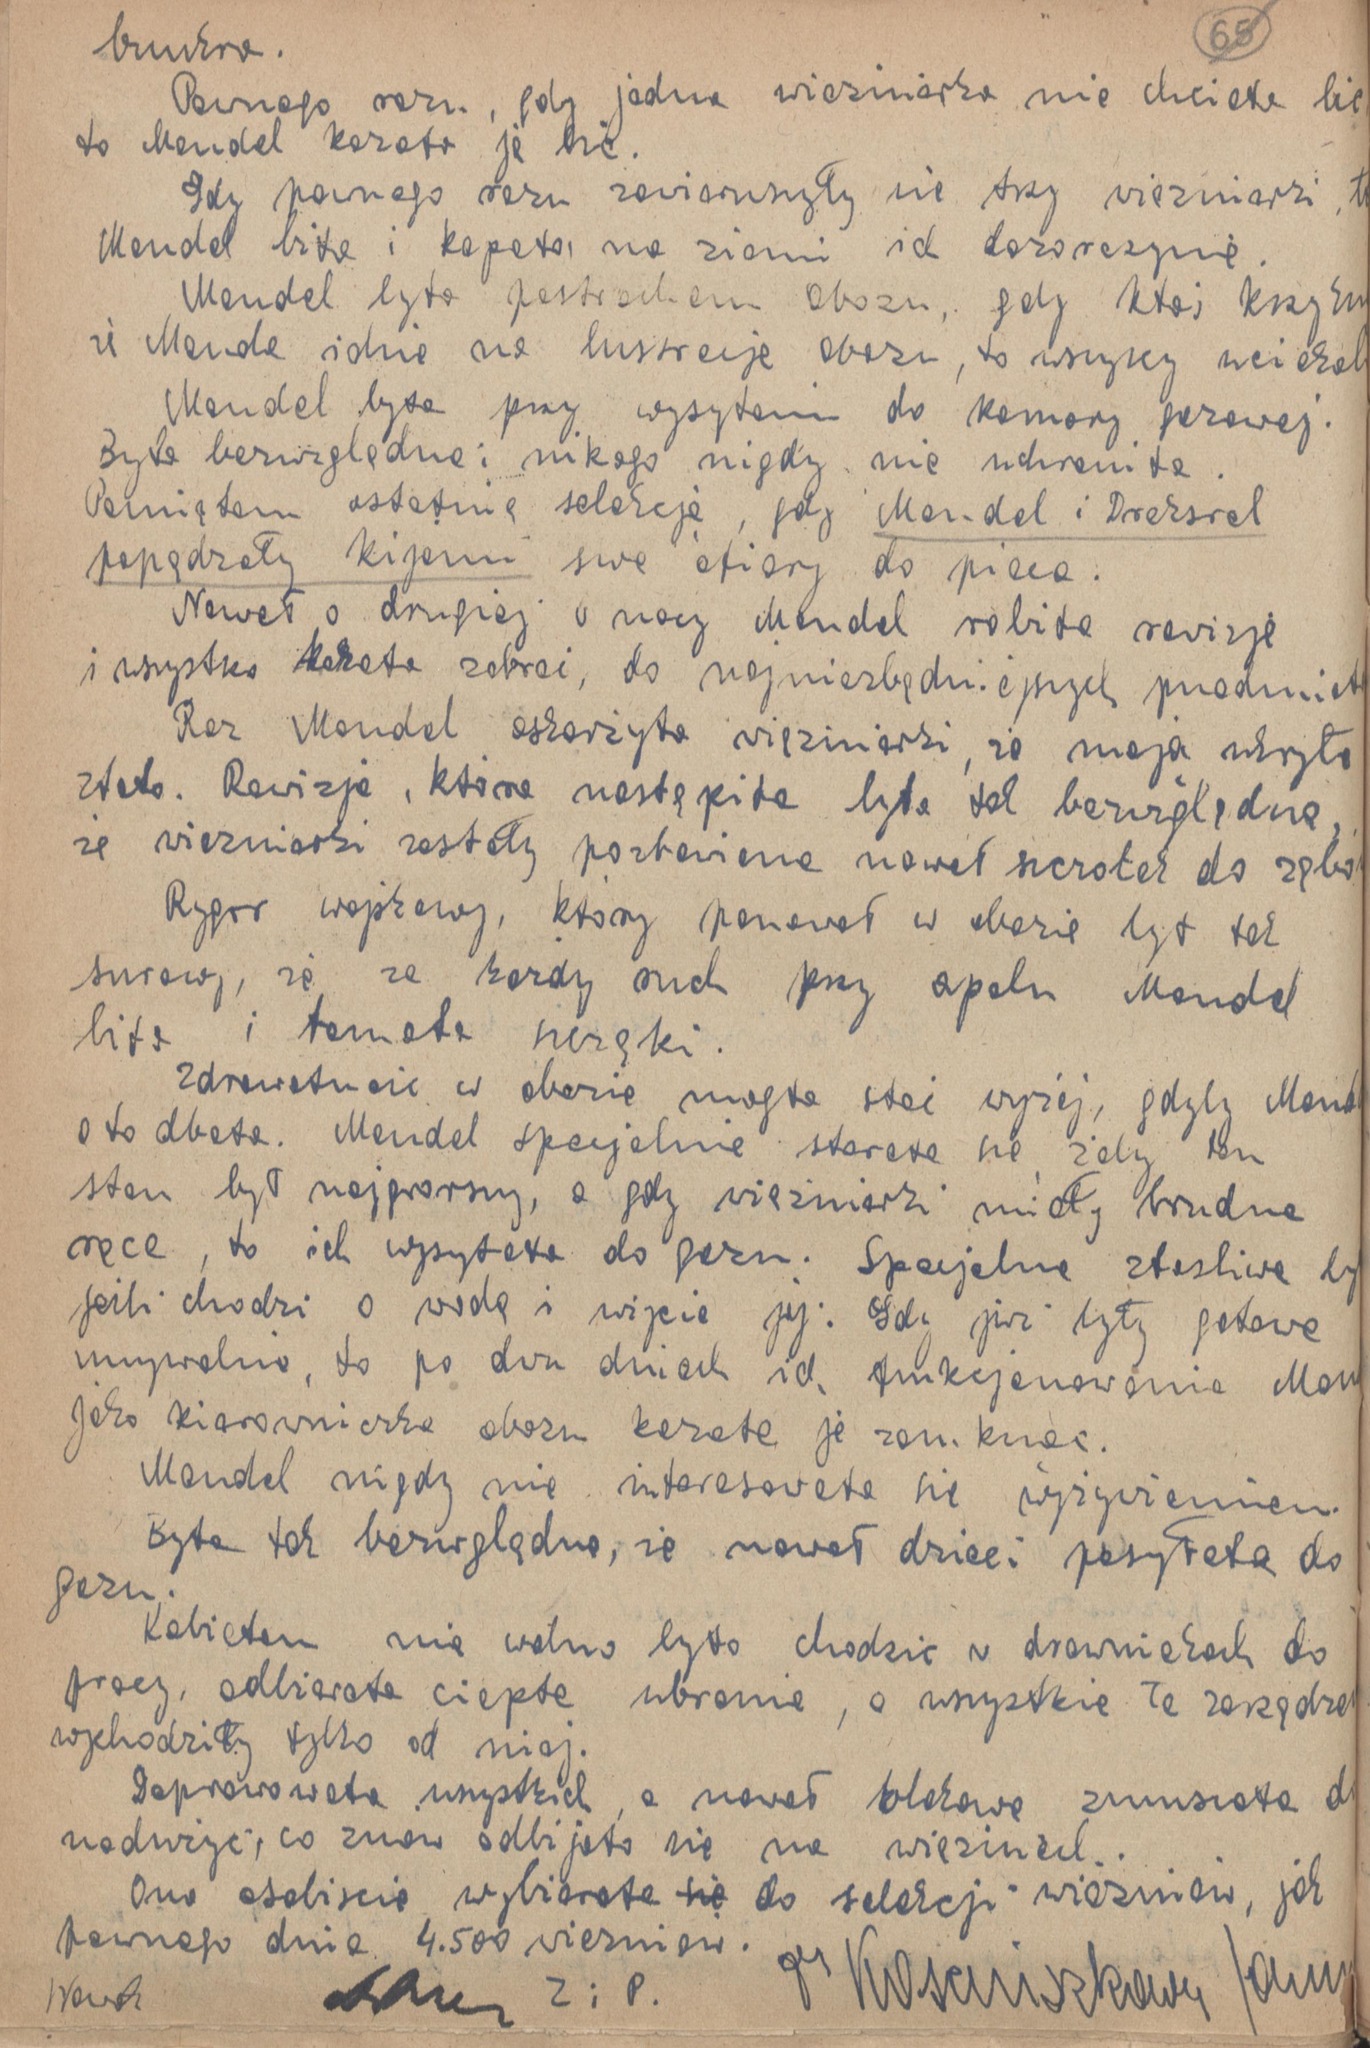 65
bunkra.
Pewnego razu, gdy jedna więzniarka nie chciała bić
to Mandel kazała ją bić.
Gdy pewnego razu zawieruszyły się trzy więzniarki, t
Mandel biła i kopała na ziemi ich dozorczynię.
Mandel była postrachem obozu, gdy ktoś krzykn
że Mandel idzie na lustrację obozu, to wszyscy uciekal
Mandel była przy wysyłaniu do komory gazowej.
Była bezwzględna i nikogo nigdy nie uchroniła.
Pamiętam ostatnią selekcję, gdy Mandel i Drekssel
popędzały kijami swe ofiary do pieca.
Nawet o drugiej w nocy Mandel robiła rewizję
i wszystko kazała zabrać, do najniezbędniejszych przedmiot
Raz Mandel oskarżyła więzniarki, że mają ukryte
złoto. Rewizja, która nastąpiła była tak bezwzględna,
że więzniarki zostały pozbawione nawet szczotek do zębó
Rygor wojskowy, który panował w obozie był tak
surowy, że za każdy ruch przy apelu Mandel
biła i łamała szczęki.
Zdrowotność w obozie mogła stać wyżej, gdyby Mand
o to dbała. Mandel specjalnie starała się, żeby ten
stan był najgorszy, a gdy więzniarki miały brudne
ręce, to ich wysyłała do gazu. Specjalnie złośliwa by
jeśli chodzi o wodę i wzięcie jej. Gdy już były gotowe
umywalnie, to po dwu dniach ich funkcjonowania Man
jako kierowniczka obozu kazała je zamknąć.
Mandel nigdy nie interesowała się wyżywieniem.
Była tak bezwzględna, że nawet dzieci posyłała do
gazu.
Kobietom nie wolno było chodzić w drewniakach do
pracy, odbierała ciepłe ubranie, a wszystkie te zarządze
wychodziły tylko od niej.
Deprawowała wszystkich, a nawet blokowe zmuszała d
nadużyć, co znów odbijało się na więźniach.
Ona osobiście wybierała się do selekcji więzniów, jak
pewnego dnia 4.500 więzniów.
Z. i P.